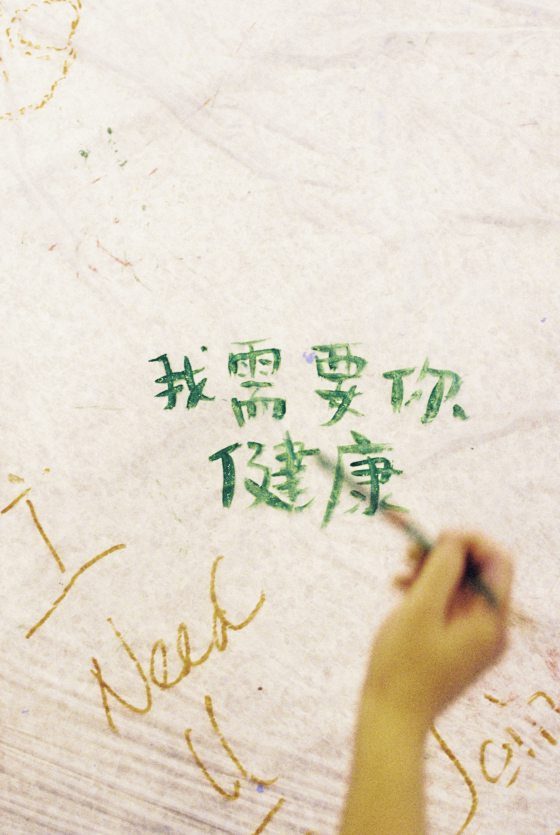 我需要你
健康
I
Need
U